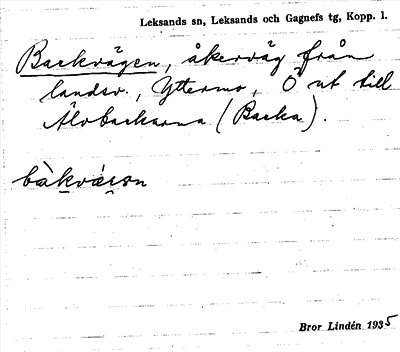 Leksands sn, Leksands och Gagnefs tg, Kopp. l.
Backvägen, åkerväg från
landsv., Yttermo, Ö ut till
Älvbackarna (Backa).
Bror Lindén 1935